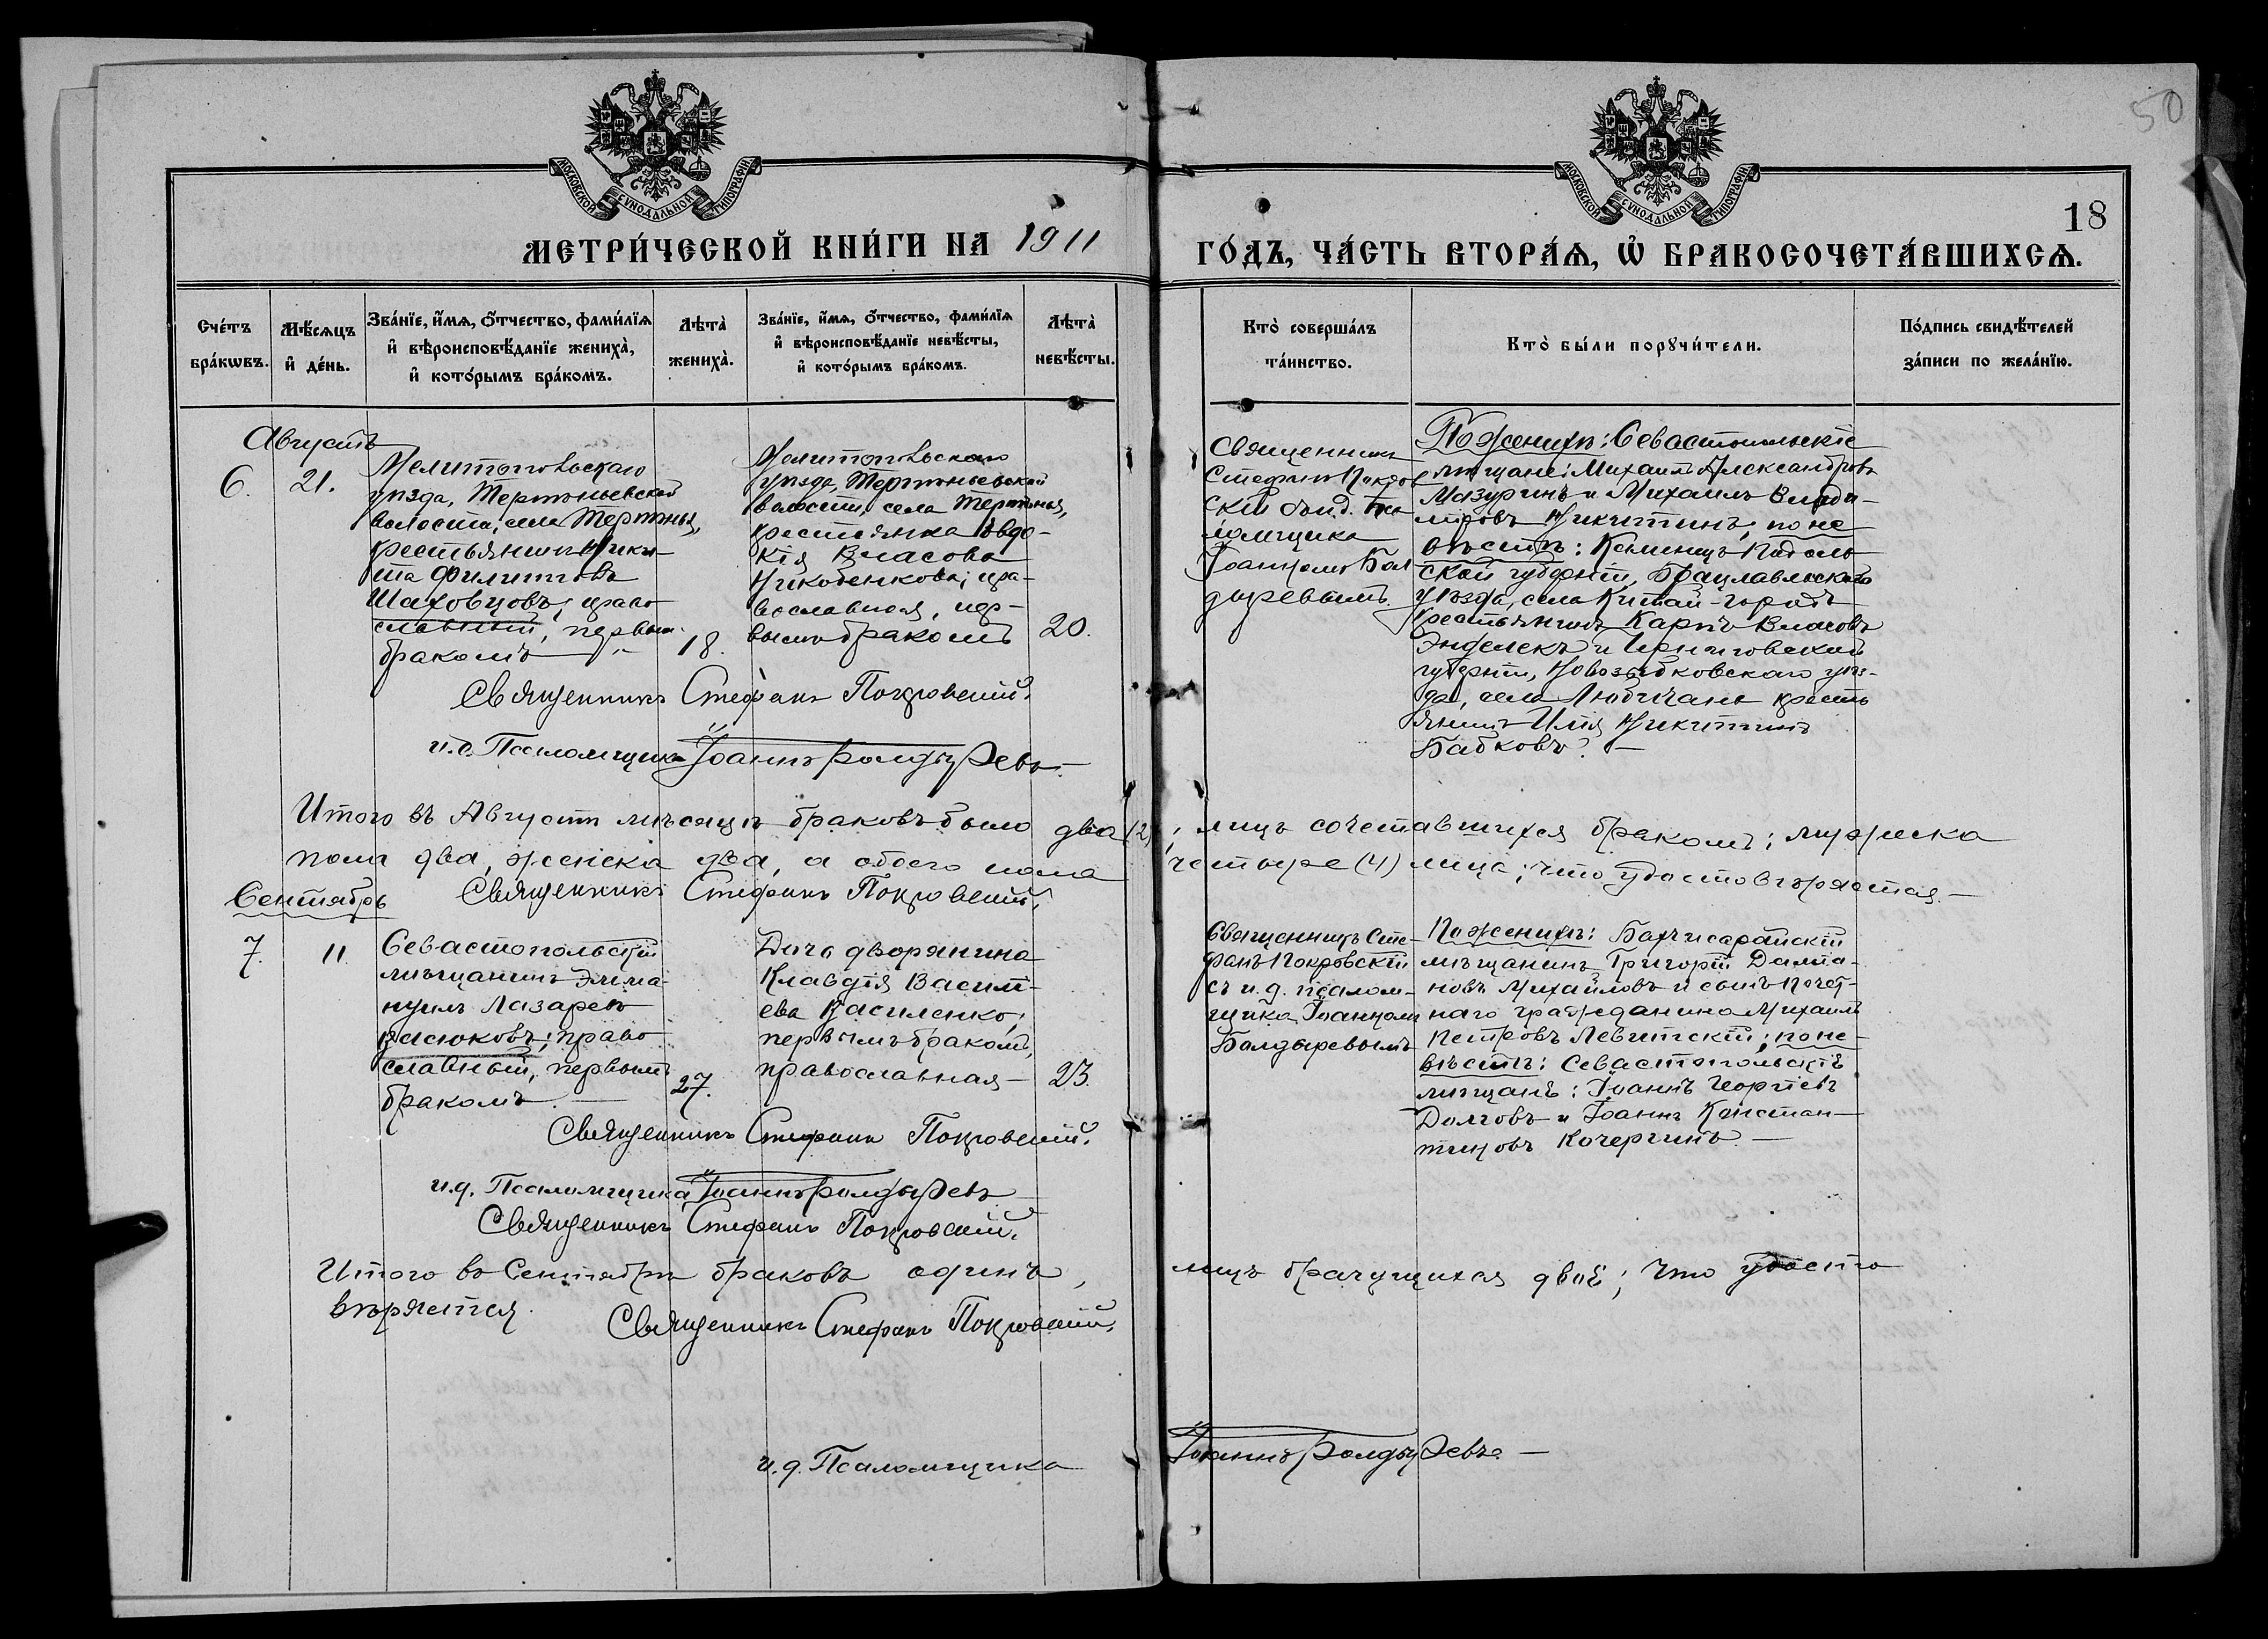 50
18
МОСКОВСКОЙ СѴНОДАЛЬНОЙ ТИПОГРАФІИ
МОСКОВСКОЙ СѴНОДАЛЬНОЙ ТИПОГРАФІИ
МЕТРИ́ЧЕСКОЙ КНИ́ГИ НА 1911
ГО́ДЪ, ЧА́СТЬ ВТОРА́Ѧ, Ѽ БРАКОСОЧЕТА́ВШИХСѦ.
Сче́тъ
бра́кѡвъ.
Мѣ́сѧцъ
и҆ де́нь.
Зва́нїе, и҆́мѧ, ѻ҆́тчество, фами́лїѧ
и҆ вѣроисповѣ́данїе жениха̀,
и҆ кото́рымъ бра́комъ.
Лѣта̀
жениха̀.
Зва́нїе, и҆́мѧ, ѻ҆́тчество, фами́лїѧ
и҆ вѣроисповѣ́данїе невѣ́сты,
и҆ кото́рымъ бра́комъ.
Лѣта̀
невѣ́сты.
Кто̀ соверша́лъ
та́инство.
Кто̀ бы́ли порꙋчи́тели.
По́дпись свидѣ́телей
за́писи по жела́нїю.
Августъ
6.
21.
Мелитопольскаго
уѣзда, Терпѣньевской
волости, села Терпѣнья,
крестьянинъ Ники-
та Филипповъ
Шаховцовъ, право
славный, первым
бракомъ
18.
Мелитопольскаго
уѣзда, Терпѣньевской
волости, села Терпѣнья,
крестьянка Евдо-
кія Власова
пра-
вославная, пер-
вымъ бракомъ
20.
Священникъ
Стефанъ Покров
скій съ и.д. Пса
ломщика
Іоанномъ Бол
дыревымъ.
По женихѣ: Севастопольскіе
мѣщане: Михаилъ Александровъ
Мазуринъ и Михаилъ Влади-
міровъ Никитинъ; по не
вѣстѣ: Каменецъ Подоль
ской губерніи, Брацлавльскаго
уѣзда, села Китай-города
крестьянинъ Карпъ Власовъ
и Черниговской
губерніи, Новозыбковскаго уѣз-
да, села кресть
янинъ Илія Никитинъ
Бабковъ. —
Священникъ Стефанъ Покровскій.
и.д. Псаломщика Іоаннъ Болдыревъ.
Итого въ Августѣ мѣсяцѣ браковъ было два (2); лицъ сочетавшихся бракомъ: мужеска
пола два, женска два, а обоего пола четыре (4) лица; что удостовѣряется. —
Священникъ Стефанъ Покровскій.
Сентябрь
7.
11
Севастопольскій
мѣщанинъ Эмма-
нуилъ Лазаревъ
право
славный, первымъ
бракомъ. —
27.
Дочь дворянина
Клавдія Василі-
ева Василенко,
первымъ бракомъ,
православная —
23.
Священникъ Сте-
фанъ Покровскій
съ и.д. псалом-
щика Іоанномъ
Болдыревымъ
По женихѣ: Бахчисарайскій
мѣщанинъ Григорій Даміа-
новъ Михайловъ и сынъ Почет-
наго гражданина Михаилъ
Петровъ Левитскій; по не-
вѣстѣ: Севастопольскіе
мѣщане: Іоаннъ Георгіевъ
Долговъ и Іоаннъ Констан-
тиновъ Кочергинъ. —
Священникъ Стефанъ Покровскій.
и.д. Псаломщика Іоаннъ Болдыревъ
Священникъ Стефанъ Покровскій.
Итого въ Сентябрѣ браковъ одинъ, лицъ брачущихся двое; что удосто
вѣряется.
Священникъ Стефанъ Покровскій.
и.д. Псаломщика Іоаннъ Болдыревъ. —